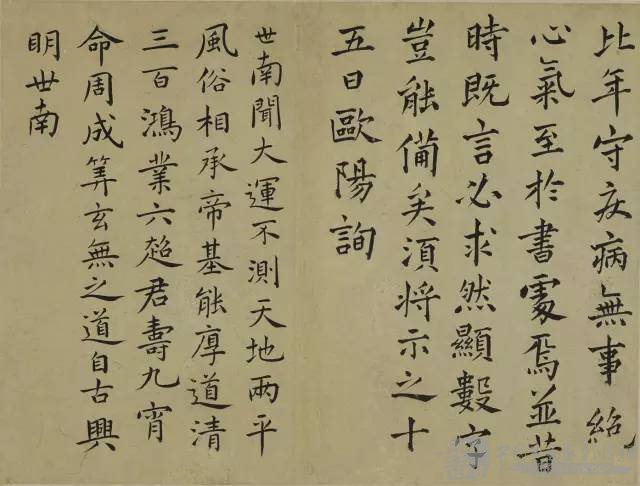 比年守疾病無事絶
心氣至於書處焉並昔
時既言必求然顯數字
豈能備矣須將示之十
五日歐陽詢
世南聞大運不測天地兩平
風俗相承帝基能厚道清
三百鴻業六超君壽九霄
命周成筭玄無之道自古興
明世南